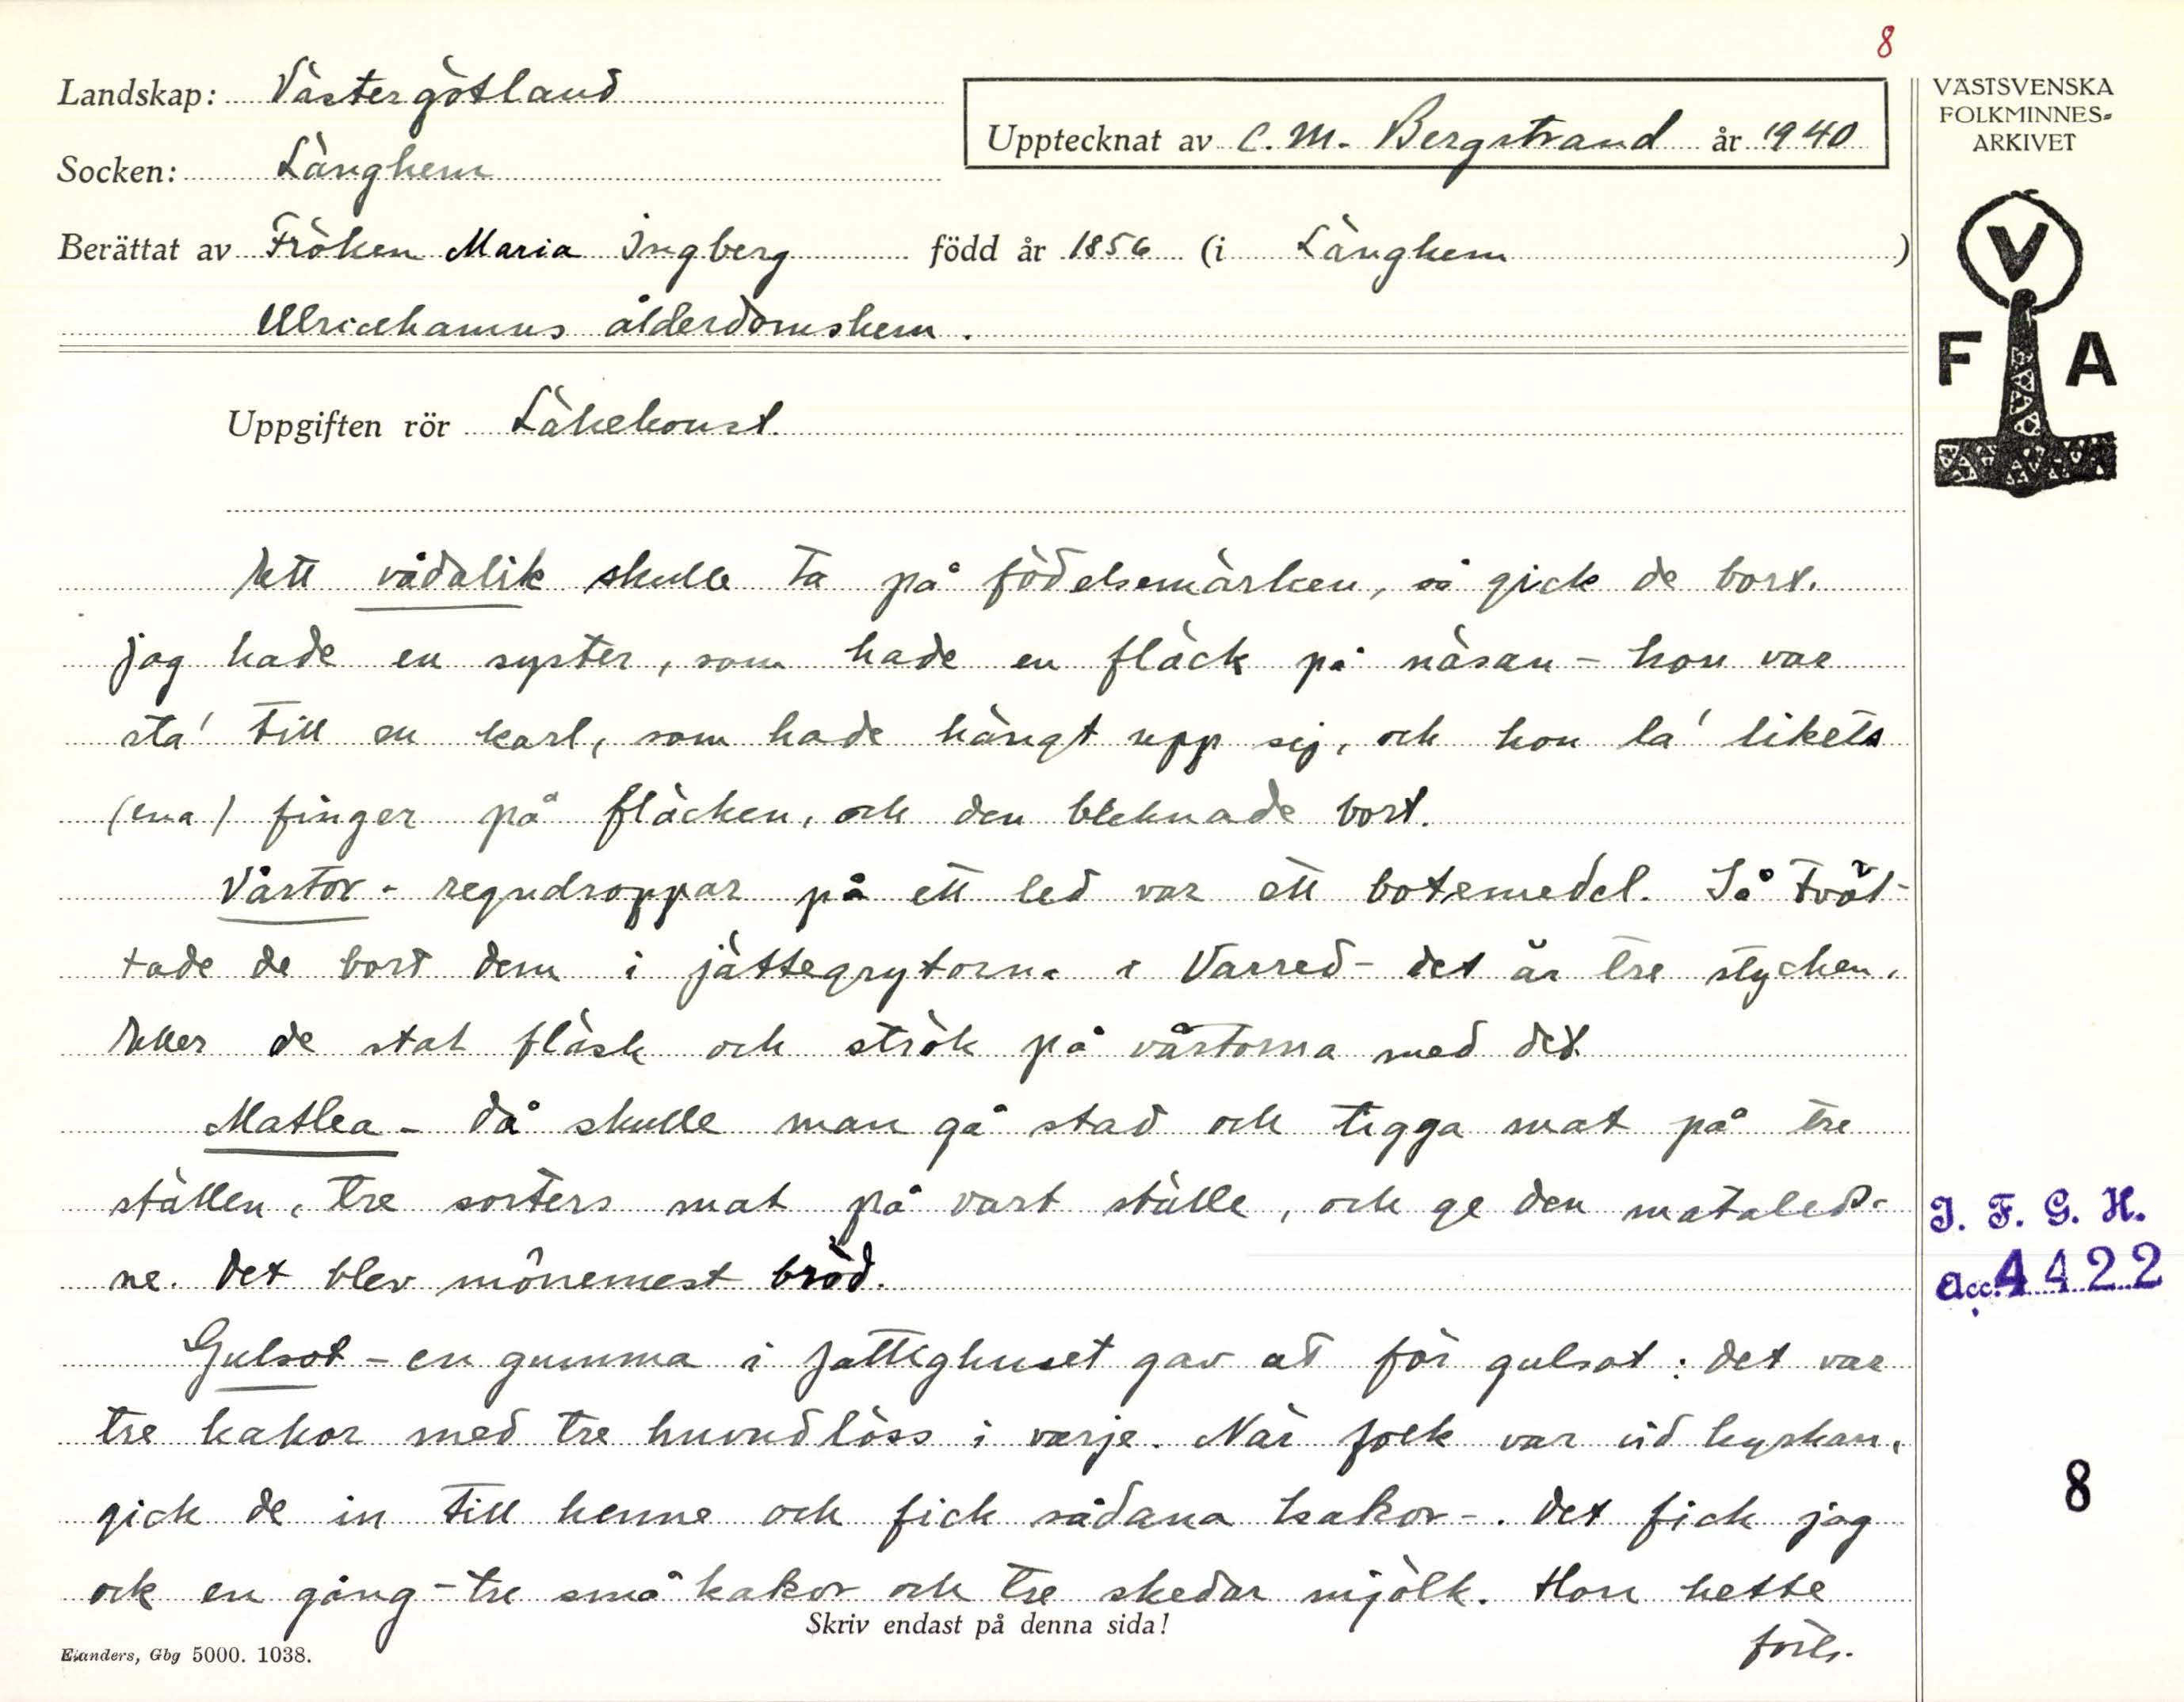 8
Landskap: Västergötland
Socken: Länghem
Upptecknat av C. M. Bergstrand år 1940
Berättat av Fröken Maria Ingberg född år 1856 (i Länghem )
Ulricehamns ålderdomshem.
VÄSTSVENSKA
FOLKMINNES-
ARKIVET
V
F A
Uppgiften rör Läkekonst.
Ett vådalik skulle ta på födelsemärken, så gick de bort.
Jag hade en syster, som hade en fläck på näsan - hon var
sta' till en karl, som hade hängt upp sig, och hon la' likets
(ena) finger på fläcken, och den bleknade bort.
Vårtor - regndroppar på ett led var ett botemedel. Så tvät-
tade de bort dem i jättegrytorna i Varred - det är tre stycken.
Eller de stal fläsk och strök på vårtorna med det.
Matlea - då skulle man gå stad och tigga mat på tre
ställen, tre sorters mat på vart ställe, och ge den mataled-
ne. Det blev mönemest bröd.
Gulsot - en gumma i fattighuset gav at för gulsot: det var
tre kakor med tre huvudlöss i varje. När folk var vid kyrkan,
gick de in till henne och fick sådana kakor -. Det fick jag
ock en gång - tre små kakor och tre skedar mjölk. Hon hette
forts.
I. F. G. H.
acc. 4422
8
Skriv endast på denna sida!
Elanders, Gbg 5000. 1038.